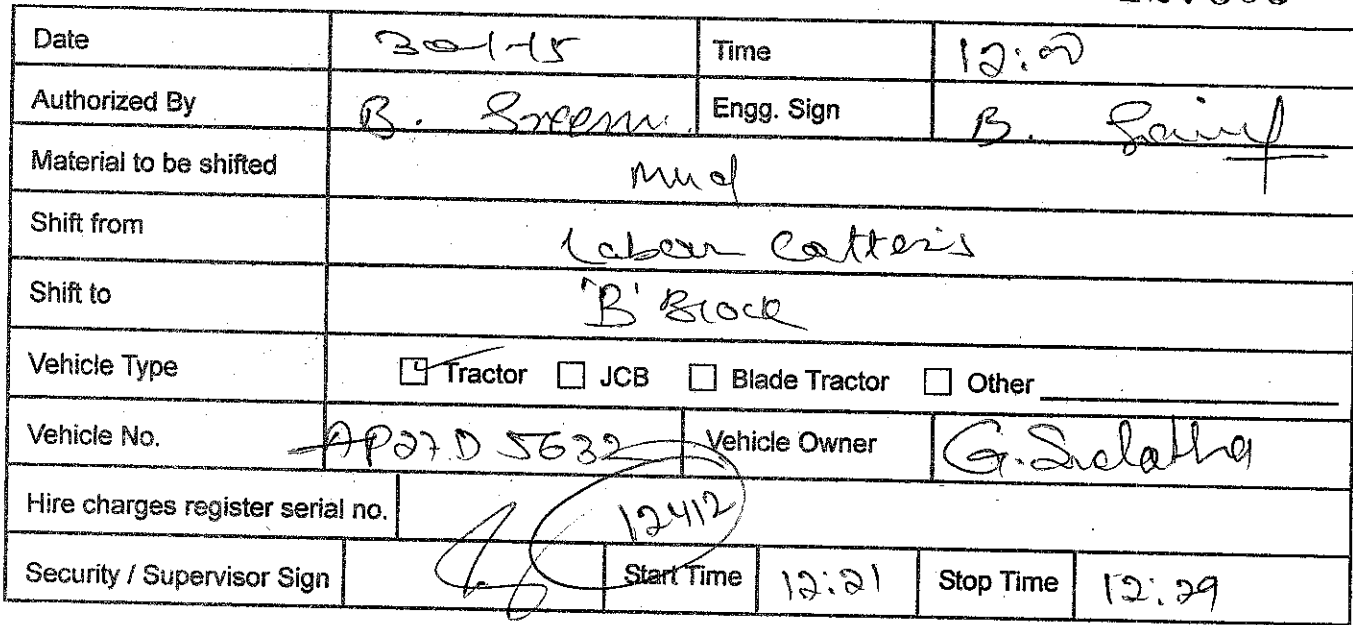 Date 30-1-15 Time 12:00
Authorized By B. Sreenu. Engg. Sign B.
Material to be shifted Mud
Shift from Labour
Shift to 'B' Block
Vehicle Type Tractor JCB Blade Tractor Other
Vehicle No. AP27.D 5632 Vehicle Owner G.
Hire charges register serial no. 12412
Security / Supervisor Sign Start Time 12:21 Stop Time 12:29